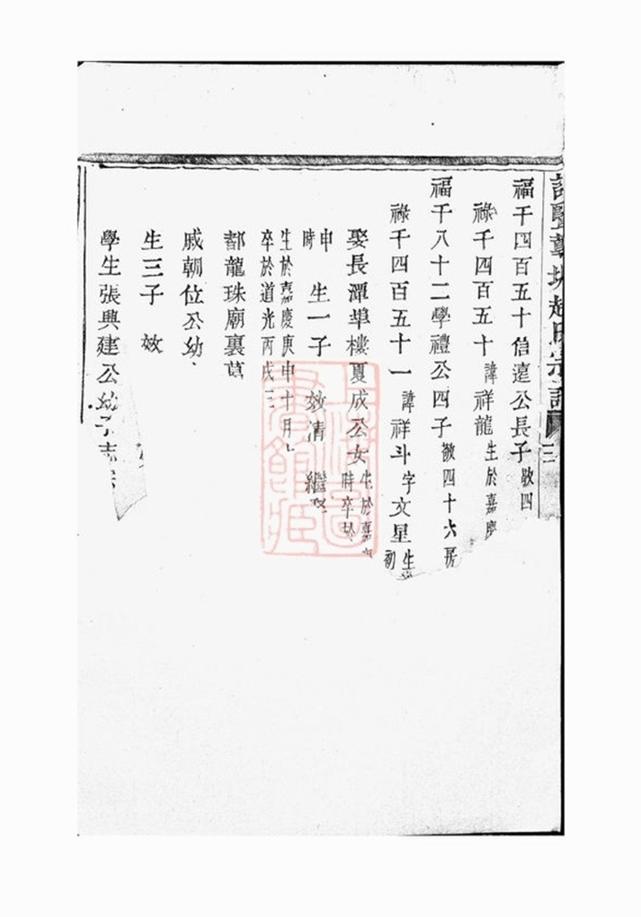 暨 趙氏宗譜 三
福千四百五十信遠公長子 敬四
祿千四百五十 諱祥龍 生於嘉慶
福千八十二學禮公四子 敬四十六房
祿千四百五十一 諱祥斗 字文星 生 初
娶長潭埠樓夏成公女 生於嘉 時卒於
申時 生一子 效清 繼
生於嘉慶庚申十月 卒於道光丙戌三
鄣龍珠廟裏
戚朝位公幼
生三子 效
學生張興建公幼子志